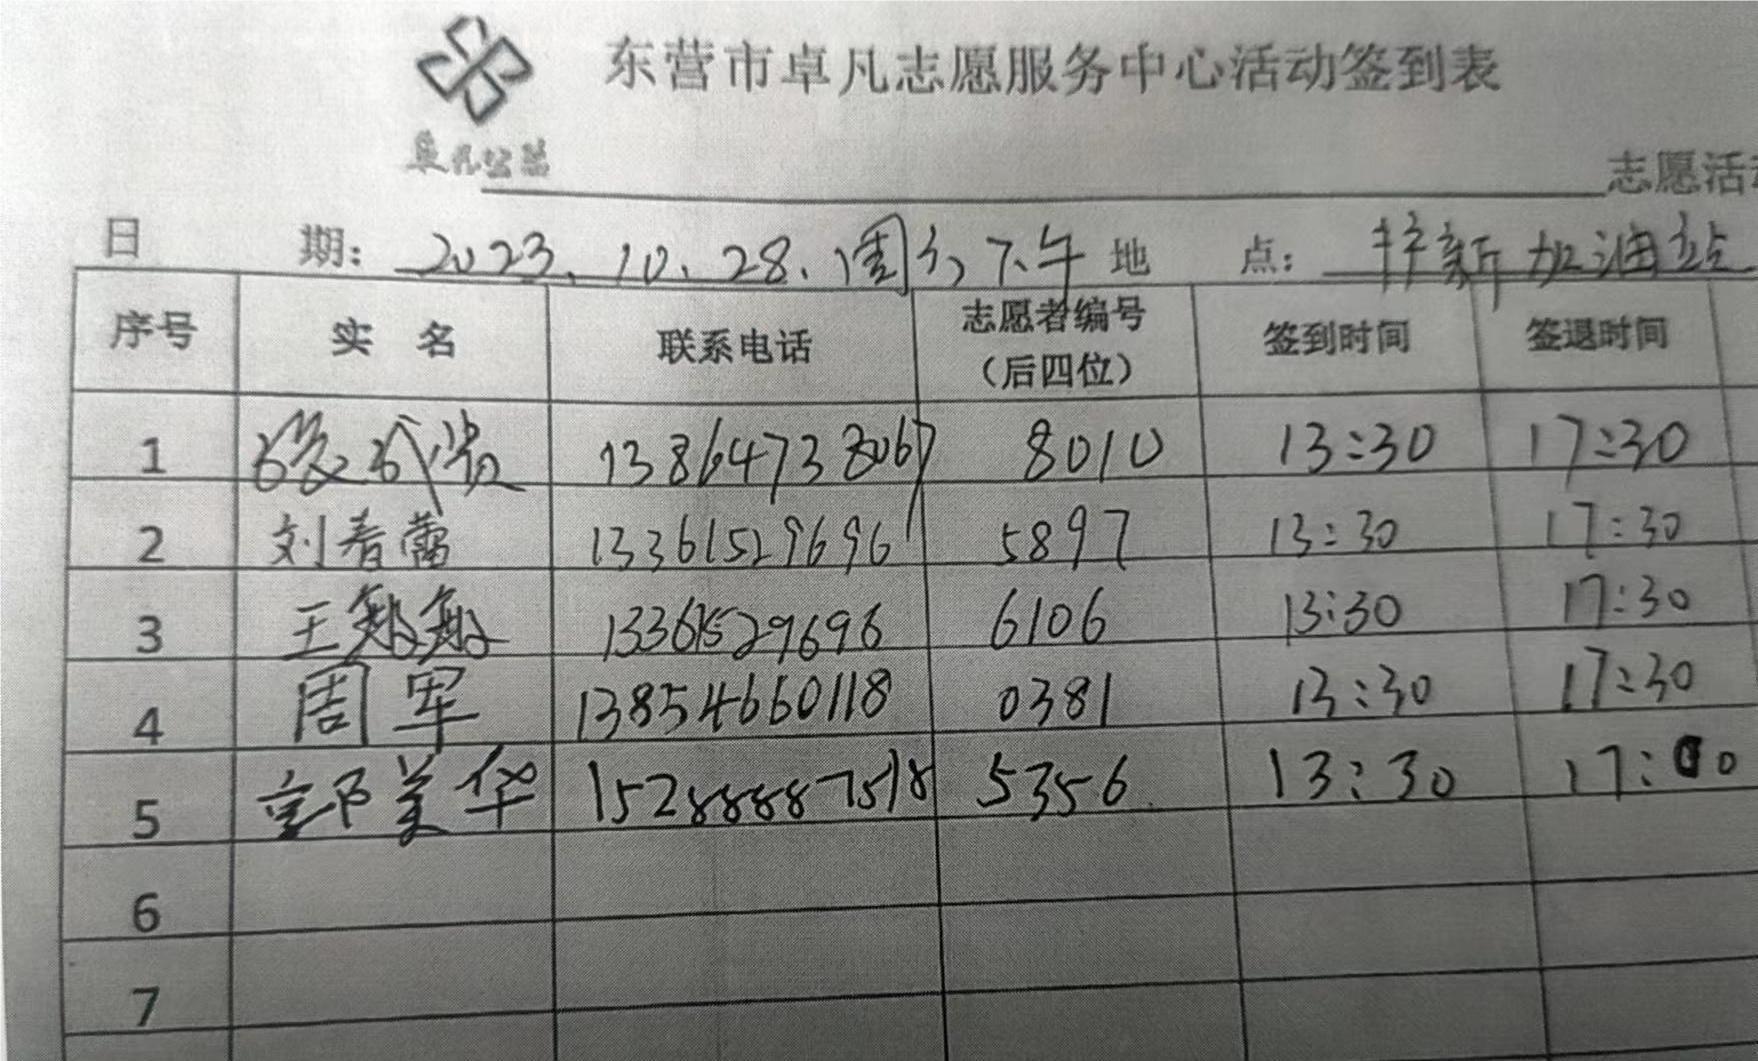 东营市卓凡志愿服务中心活动签到表
卓凡公益
志愿活
日 期： 2023.10.28.周六下午 地 点： 新加油站
序号 实 名 联系电话 志愿者编号（后四位） 签到时间 签退时间
1 13864738067 8010 13:30 17:30
2 刘春蕾 13361529696 5897 13:30 17:30
3 王 13361529696 6106 13:30 17:30
4 周军 13854660118 0381 13:30 17:30
5 郭美华 15288887518 5356 13:30 17:00
6
7